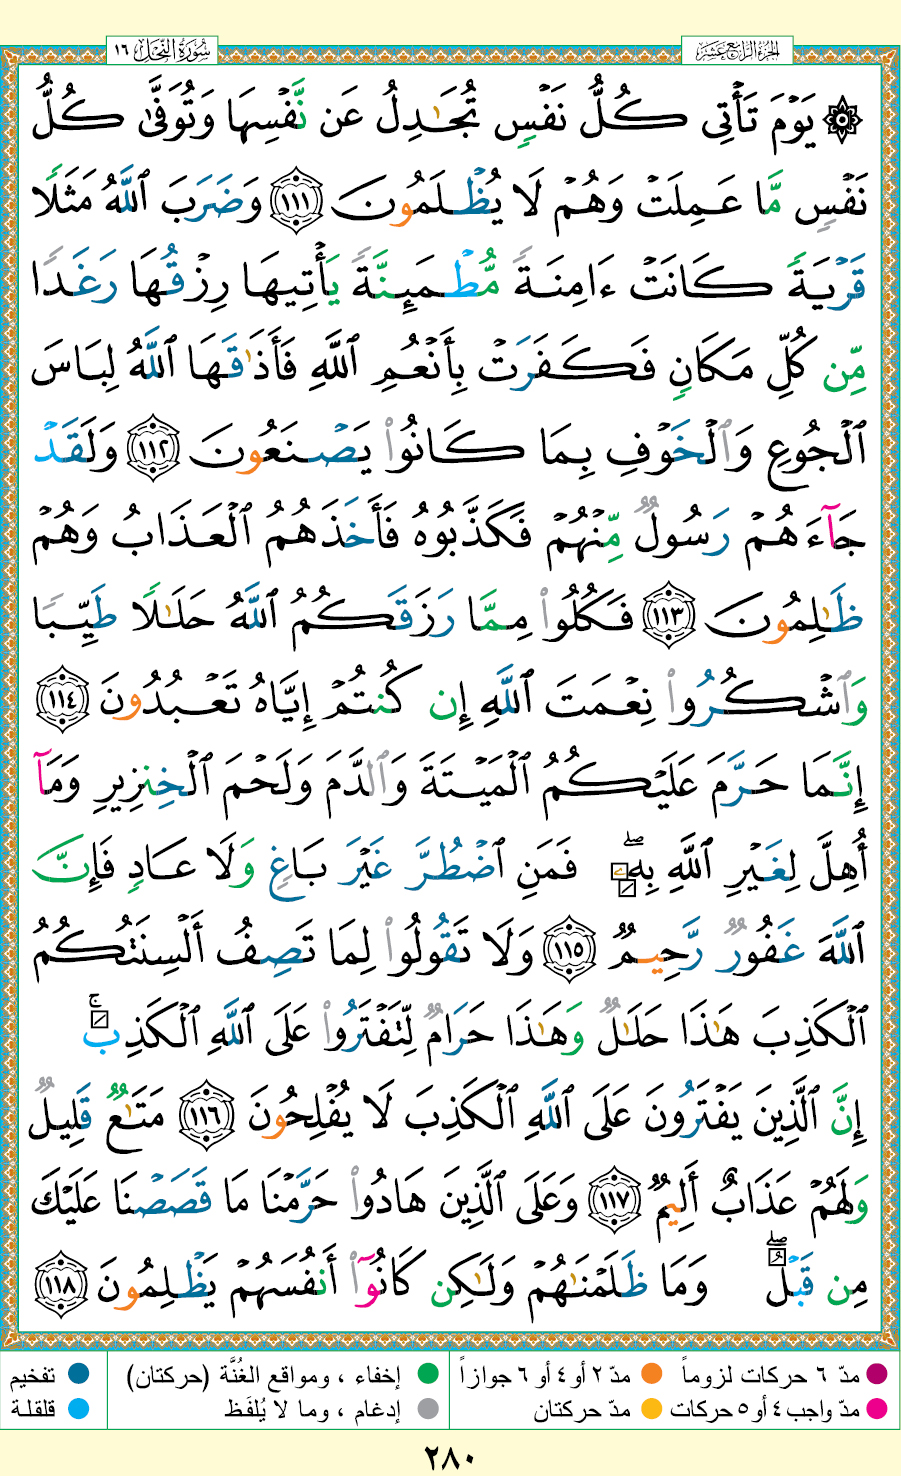 الجزء الرابع عشر
سورة النحل ١٦
۞ يَوْمَ تَأْتِى كُلُّ نَفْسٍ تُجَٰدِلُ عَن نَّفْسِهَا وَتُوَفَّىٰ كُلُّ
نَفْسٍ مَّا عَمِلَتْ وَهُمْ لَا يُظْلَمُونَ ١١١ وَضَرَبَ ٱللَّهُ مَثَلًا
قَرْيَةً كَانَتْ ءَامِنَةً مُّطْمَئِنَّةً يَأْتِيهَا رِزْقُهَا رَغَدًا
مِّن كُلِّ مَكَانٍ فَكَفَرَتْ بِأَنْعُمِ ٱللَّهِ فَأَذَٰقَهَا ٱللَّهُ لِبَاسَ
ٱلْجُوعِ وَٱلْخَوْفِ بِمَا كَانُوا۟ يَصْنَعُونَ ١١٢ وَلَقَدْ
جَآءَهُمْ رَسُولٌ مِّنْهُمْ فَكَذَّبُوهُ فَأَخَذَهُمُ ٱلْعَذَابُ وَهُمْ
ظَٰلِمُونَ ١١٣ فَكُلُوا۟ مِمَّا رَزَقَكُمُ ٱللَّهُ حَلَٰلًا طَيِّبًا
وَٱشْكُرُوا۟ نِعْمَتَ ٱللَّهِ إِن كُنتُمْ إِيَّاهُ تَعْبُدُونَ ١١٤
إِنَّمَا حَرَّمَ عَلَيْكُمُ ٱلْمَيْتَةَ وَٱلدَّمَ وَلَحْمَ ٱلْخِنزِيرِ وَمَآ
أُهِلَّ لِغَيْرِ ٱللَّهِ بِهِۦۖ فَمَنِ ٱضْطُرَّ غَيْرَ بَاغٍ وَلَا عَادٍ فَإِنَّ
ٱللَّهَ غَفُورٌ رَّحِيمٌ ١١٥ وَلَا تَقُولُوا۟ لِمَا تَصِفُ أَلْسِنَتُكُمُ
ٱلْكَذِبَ هَٰذَا حَلَٰلٌ وَهَٰذَا حَرَامٌ لِّتَفْتَرُوا۟ عَلَى ٱللَّهِ ٱلْكَذِبَۚ
إِنَّ ٱلَّذِينَ يَفْتَرُونَ عَلَى ٱللَّهِ ٱلْكَذِبَ لَا يُفْلِحُونَ ١١٦ مَتَٰعٌ قَلِيلٌ
وَلَهُمْ عَذَابٌ أَلِيمٌ ١١٧ وَعَلَى ٱلَّذِينَ هَادُوا۟ حَرَّمْنَا مَا قَصَصْنَا عَلَيْكَ
مِن قَبْلُۖ وَمَا ظَلَمْنَٰهُمْ وَلَٰكِن كَانُوٓا۟ أَنفُسَهُمْ يَظْلِمُونَ ١١٨
مدّ ٦ حركات لزوماً مدّ ٢ أو ٤ أو ٦ جوازاً إخفاء ، ومواقع الغُنَّة (حركتان) تفخيم
مدّ واجب ٤ أو ٥ حركات مدّ حركتان إدغام ، وما لا يُلفَظ قلقلة
٢٨٠